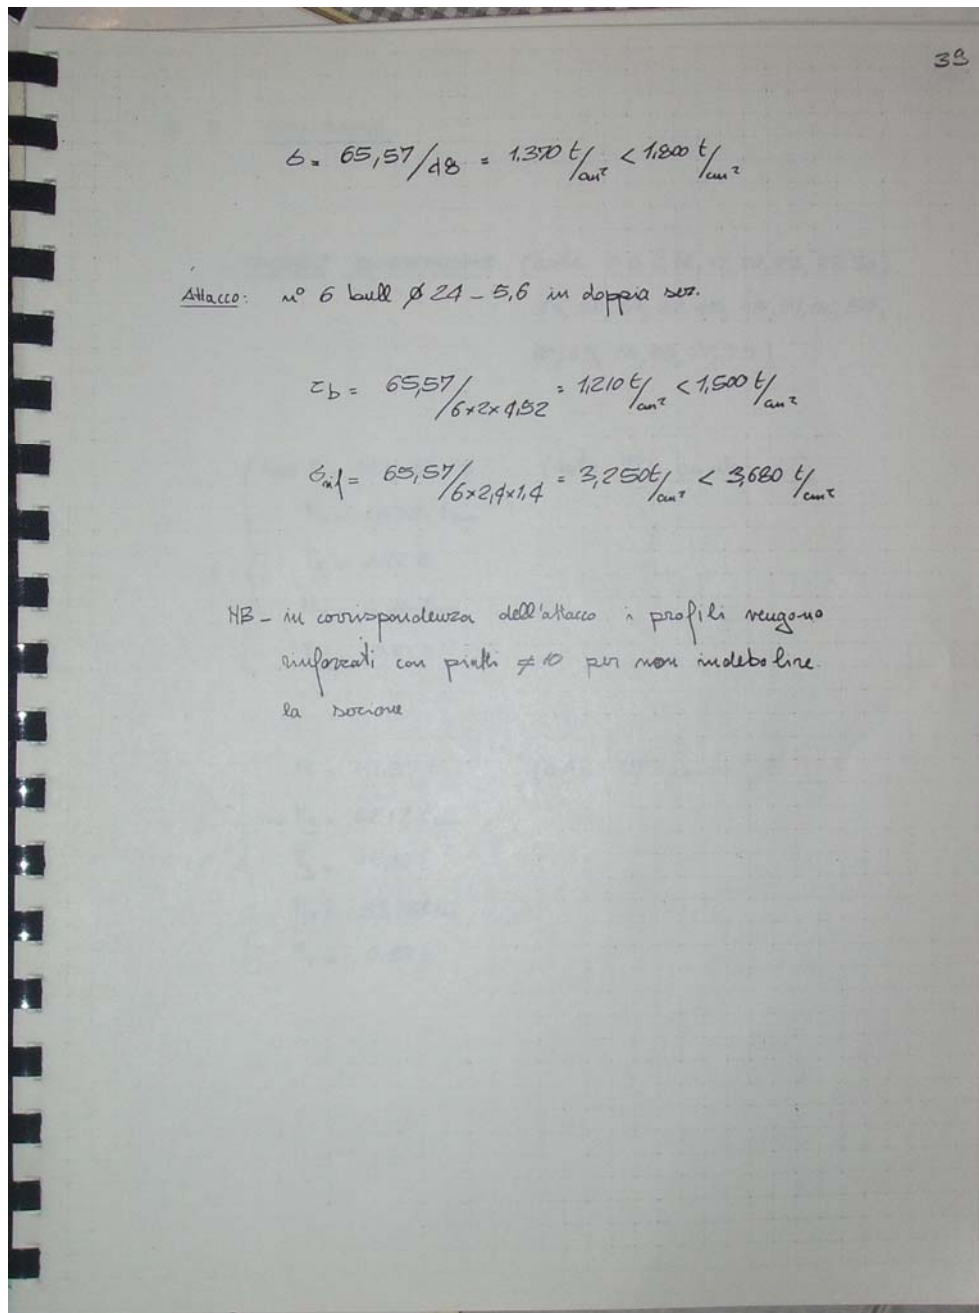 39
σ = 65,57/48 = 1.370 t/cm² < 1.800 t/cm²
Attacco: n° 6 bull ø 24 - 5,6 in doppia sez.
τb = 65,57/6×2×4,52 = 1,210 t/cm² < 1,500 t/cm²
σrif = 65,57/6×2,4×1,4 = 3,250 t/cm² < 3,680 t/cm²
NB - in corrispondenza dell'attacco i profili vengono
rinforzati con piatti ≠ 10 per non indebolire.
la sezione